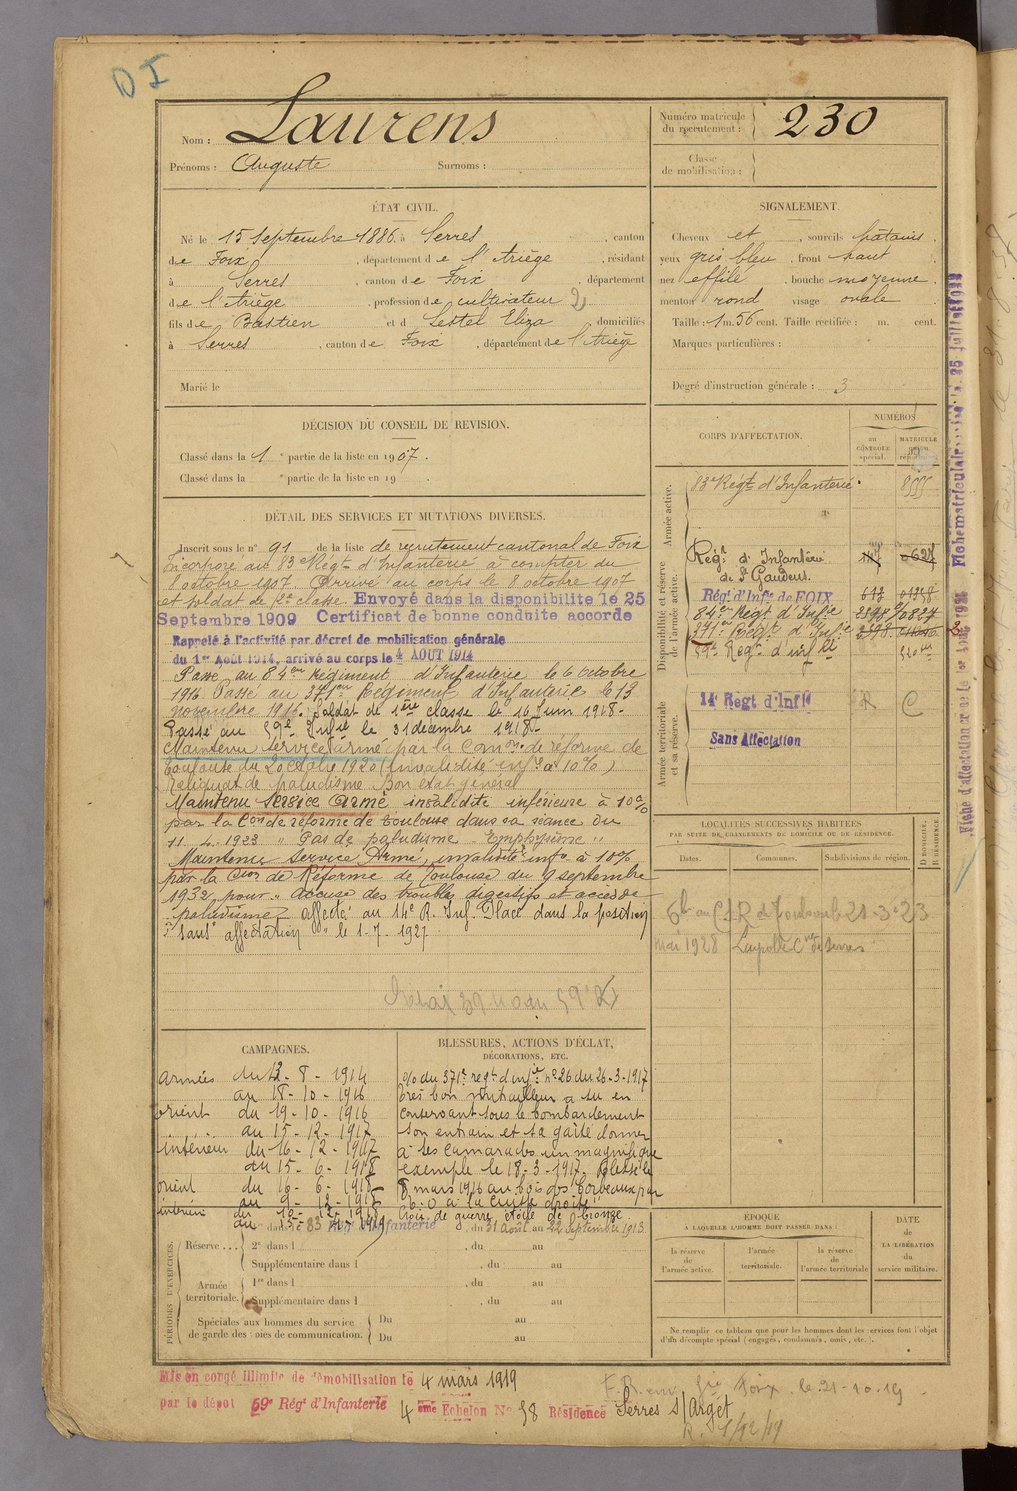 D I
Nom : Laurens
Prénoms : Auguste Surnoms :
Numéro matricule du recrutement : 230
Classe de mobilisation :
ÉTAT CIVIL.
Né le 15 Septembre 1886, à Serres, canton
de Foix, département de l'Ariège, résidant
à Serres, canton de Foix, département
de l'Ariège, profession de cultivateur 2
fils de Bastien et d Sestel Eliza domiciliés
à Serres, canton de Foix, département de l'Ariège
Marié le
SIGNALEMENT.
Cheveux et, sourcils châtains,
yeux gris bleu, front haut,
nez effilé, bouche moyenne,
menton rond visage ovale
Taille : 1 m. 56 cent. Taille rectifiée : m. cent.
Marques particulières :
Degré d'instruction générale : 3
DÉCISION DU CONSEIL DE REVISION.
Classé dans la 1e partie de la liste en 1907.
Classé dans la e partie de la liste en 19
DÉTAIL DES SERVICES ET MUTATIONS DIVERSES.
Inscrit sous le n° 91 de la liste de recrutement cantonal de Foix
incorporé au 83e Régt d'Infanterie à compter du
8 octobre 1907. Arrivé au corps le 8 octobre 1907
et soldat de 2e classe. Envoyé dans la disponibilité le 25
Septembre 1909 Certificat de bonne conduite accordé
Rappelé à l'activité par décret de mobilisation générale
du 1er Août 1914, arrivé au corps le 4 AOUT 1914
Passé au 84ème Régiment d'Infanterie le 6 octobre
1916 Passé au 371ème Régiment d'Infanterie le 13
novembre 1916. Soldat de 1ère classe le 16 Juin 1918-
Passé au 59e Infie le 31 décembre 1918
Maintenu service armé par la Comon de réforme de
Toulouse du 20 octobre 1920 (Invalidité infre à 10%)
Reliquat de paludisme Bon état général
Maintenu service armé invalidité inférieure à 10%
par la Con de réforme de Toulouse dans sa séance du
11-4-1923 " Pas de paludisme. Emphysème "
Maintenu service Armé, invalidité infre à 10%
par la Cion de Réforme de Toulouse du 9 septembre
1932 pour " accuse des troubles digestifs et accès de
paludisme " affecté au 14e R. Inf. Placé dans la position
" sans affectation " le 1-7-1927
CORPS D'AFFECTATION.
NUMÉROS
au CONTRÔLE spécial.
MATRICULE
Armée active.
83e Régt d'Infanterie 8555
Disponibilité et réserve de l'armée active.
Régt d'Infanterie de St Gaudens.
Régt d'Infie de FOIX 613 01358
84ème Régt d'Infie 2598 0827
371ème Régt d'Infie 2598
59e Régt d'infie
Armée territoriale et sa réserve.
14e Regt d'Infie R C
Sans Affectation
LOCALITÉS SUCCESSIVES HABITÉES
PAR SUITE DE CHANGEMENTS DE DOMICILE OU DE RÉSIDENCE.
Dates. Communes. Subdivisions de région. D DOMICILE, R RÉSIDENCE.
21-3-23
mai 1928
CAMPAGNES.
Armées du 12-8-1914
au 18-10-1916
orient du 19-10-1916
au 15-12-1917
intérieur du 16-12-1917
au 15-6-1918
orient du 16-6-1918
au 9-12-1918
intérieur du 10-12-1918
BLESSURES, ACTIONS D'ÉCLAT,
DÉCORATIONS, ETC.
O/o du 371e regt d'infie n° 26 du 26-3-1917
très bon mitrailleur a su en
conservant sous le bombardement
son entrain et sa gaîté donner
à ses camarades un magnifique
exemple le 18-3-1917. Blessé le
8 mars 1916 au bois des Corbeaux par
E. O à la cuisse droite
Croix de guerre étoile de bronze
PÉRIODES D'EXERCICES.
Réserve... 1re dans le 83 Régt d'Infanterie, du 31 Août au 22 Septembre 1913
2e dans l , du au
Supplémentaire dans l , du au
Armée territoriale. 1re dans l , du au
Supplémentaire dans l , du au
Spéciales aux hommes du service de garde des voies de communication. Du au
Du au
ÉPOQUE
À LAQUELLE L'HOMME DOIT PASSER DANS :
la réserve de l'armée active.
l'armée territoriale.
la réserve de l'armée territoriale
DATE de LA LIBÉRATION du service militaire.
Ne remplir ce tableau que pour les hommes dont les services font l'objet
d'un décompte spécial (engagés, condamnés, omis, etc.).
Mis en congé illimité de démobilisation le 4 mars 1919
par le dépôt 59e Régt d'Infanterie 4eme Echelon N° 58 Résidence Serres s/Arget
Foix le 21-10-19